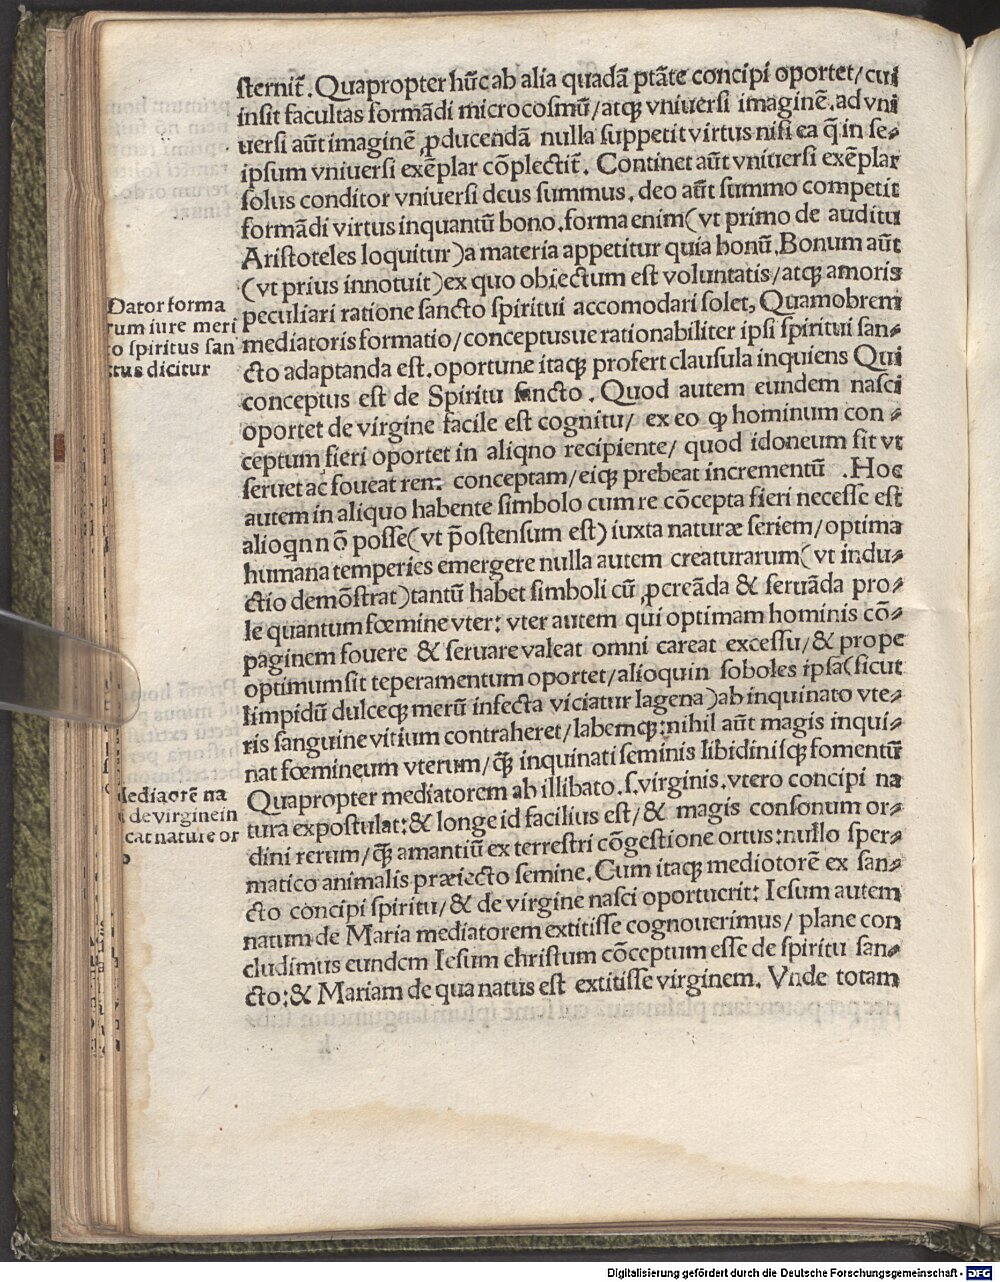 ſternit̄. Quapropter hūc ab alia quadā ptāte concipi oportet/cui
inſit facultas formādi microcoſmū/atqꝫ vniuerſi imaginē.ad vni
uerſi aūt imaginē ꝓducendā nulla ſuppetit virtus niſi ea q̄ in ſe⸗
ipſum vniuerſi exēplar cōplectit̄. Continet aūt vniuerſi exēplar
ſolus conditor vniuerſi deus ſummus. deo aūt ſummo competit
formādi virtus inquantū bono.forma enim(vt primo de auditu
Ariſtoteles loquitur)a materia appetitur quia bonū.Bonum aūt
(vt prius innotuit)ex quo obiectum eſt voluntatis/atqꝫ amoris
peculiari ratione ſancto ſpiritui accomodari ſolet, Quamobrem
mediatoris formatio/conceptusue rationabiliter ipſi ſpiritui ſan⸗
cto adaptanda eſt.oportune itaqꝫ profert clauſula inquiens Qui
conceptus eſt de Spiritu ſancto . Quod autem eundem naſci
oportet de virgine facile eſt cognitu/ ex eo ꝙ hominum con⸗
ceptum fieri oportet in aliqno recipiente/ quod idoneum ſit vt
ſeruet ac foueat rem conceptam/eiqꝫ prebeat incrementū .Hoc
autem in aliquo habente ſimbolo cum re cōcepta fieri neceſſe eſt
alioqn nō poſſe(vt p̄oſtenſum eſt) iuxta naturæ ſeriem/optima
humana temperies emergere nulla autem creaturarum(vt indu⸗
ctio demōſtrat)tantū habet ſimboli cū ꝓcreāda & ſeruāda pro⸗
le quantum fœmine vter: vter autem qui optimam hominis cō⸗
paginem fouere & ſeruare valeat omni careat exceſſu/& prope
optimum ſit teperamentum oportet/alioquin ſoboles ipſa(ſicut
limpidū dulceqꝫ merū infecta viciatur lagena)ab inquinato vte⸗
ris ſanguine vitium contraheret/labemqꝫ:nihil aūt magis inqui⸗
nat fœmineum vterum/q̄ꝫ inquinati ſeminis libidiniſqꝫ fomentū
Quapropter mediatorem ab illibato.ſ.virginis.vtero concipi na
tura expoſtulat:& longe id facilius eſt/& magis conſonum or⸗
dini rerum/q̄ꝫ amantiū ex terreſtri cōgeſtione ortus:nullo ſper⸗
matico animalis præiecto ſemine.Cum itaqꝫ mediotorē ex ſan⸗
cto concipi ſpiritu/& de virgine naſci oportuerit: Ieſum autem
natum de Maria mediatorem extitiſſe cognouerimus/ plane con
cludimus eundem Ieſum chriſtum cōceptum eſſe de ſpiritu ſan⸗
cto:& Mariam de qua natus eſt extitiſſe virginem. Vnde totam
Dator forma
rum iure meri
o ſpiritus ſan
ctus dicitur
ediaorē na
de virginein
cat nature or
o
Digitalisierung gefördert durch die Deutsche Forschungsgemeinschaft - DFG